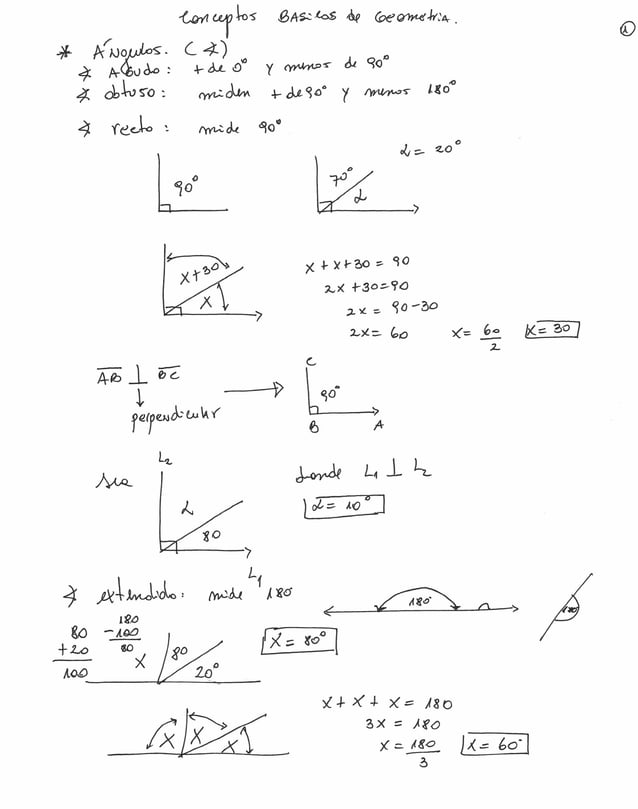 Conceptos BASicos de Geometria.
1
* Ángulos. (∡)
∡ Agudo: + de 0° y menos de 90°
∡ obtuso: miden + de 90° y menos 180°
∡ recto: mide 90°
90°
70° α
α = 20°
x+30
x
x + x+30 = 90
2x +30=90
2x = 90-30
2x = 60 x = 60/2 x=30
AB ⊥ BC
perpendicular
C
90°
B A
sea
L2
α
80
L1
donde L1 ⊥ L2
α = 10°
∡ extendido: mide 180
180
180
80
+20
100
180
-100
80
x 80 20°
x = 80°
x x x
x + x + x = 180
3x = 180
x = 180/3 x = 60°